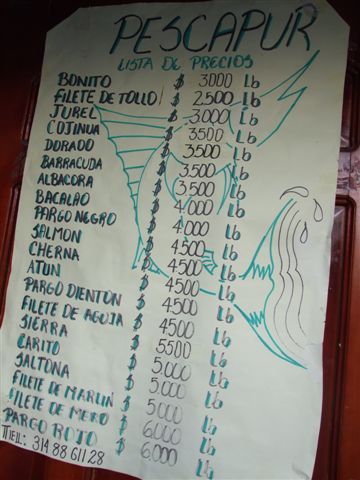 PESCAPUR
LISTA DE PRECIOS
BONITO $ 3000 Lb
FILETE DE TOLLO $ 2.500 Lb
JUREL $ 3000 Lb
COJINUA $ 3500 Lb
DORADO $ 3.500 Lb
BARRACUDA $ 3.500 Lb
ALBACORA $ 3.500 Lb
BACALAO $ 4.000 Lb
PARGO NEGRO $ 4.000 Lb
SALMON $ 4.500 Lb
CHERNA $ 4500 Lb
ATUN $ 4500 Lb
PARGO DIENTON $ 4.500 Lb
FILETE DE AGUJA $ 4500 Lb
SIERRA $ 5500 Lb
CARITO $ 5.000 Lb
SALTONA $ 5.000 Lb
FILETE DE MARLIN $ 5000 Lb
FILETE DE MERO $ 6.000 Lb
PARGO ROJO $ 6.000 Lb
TELL: 314 88 611 28